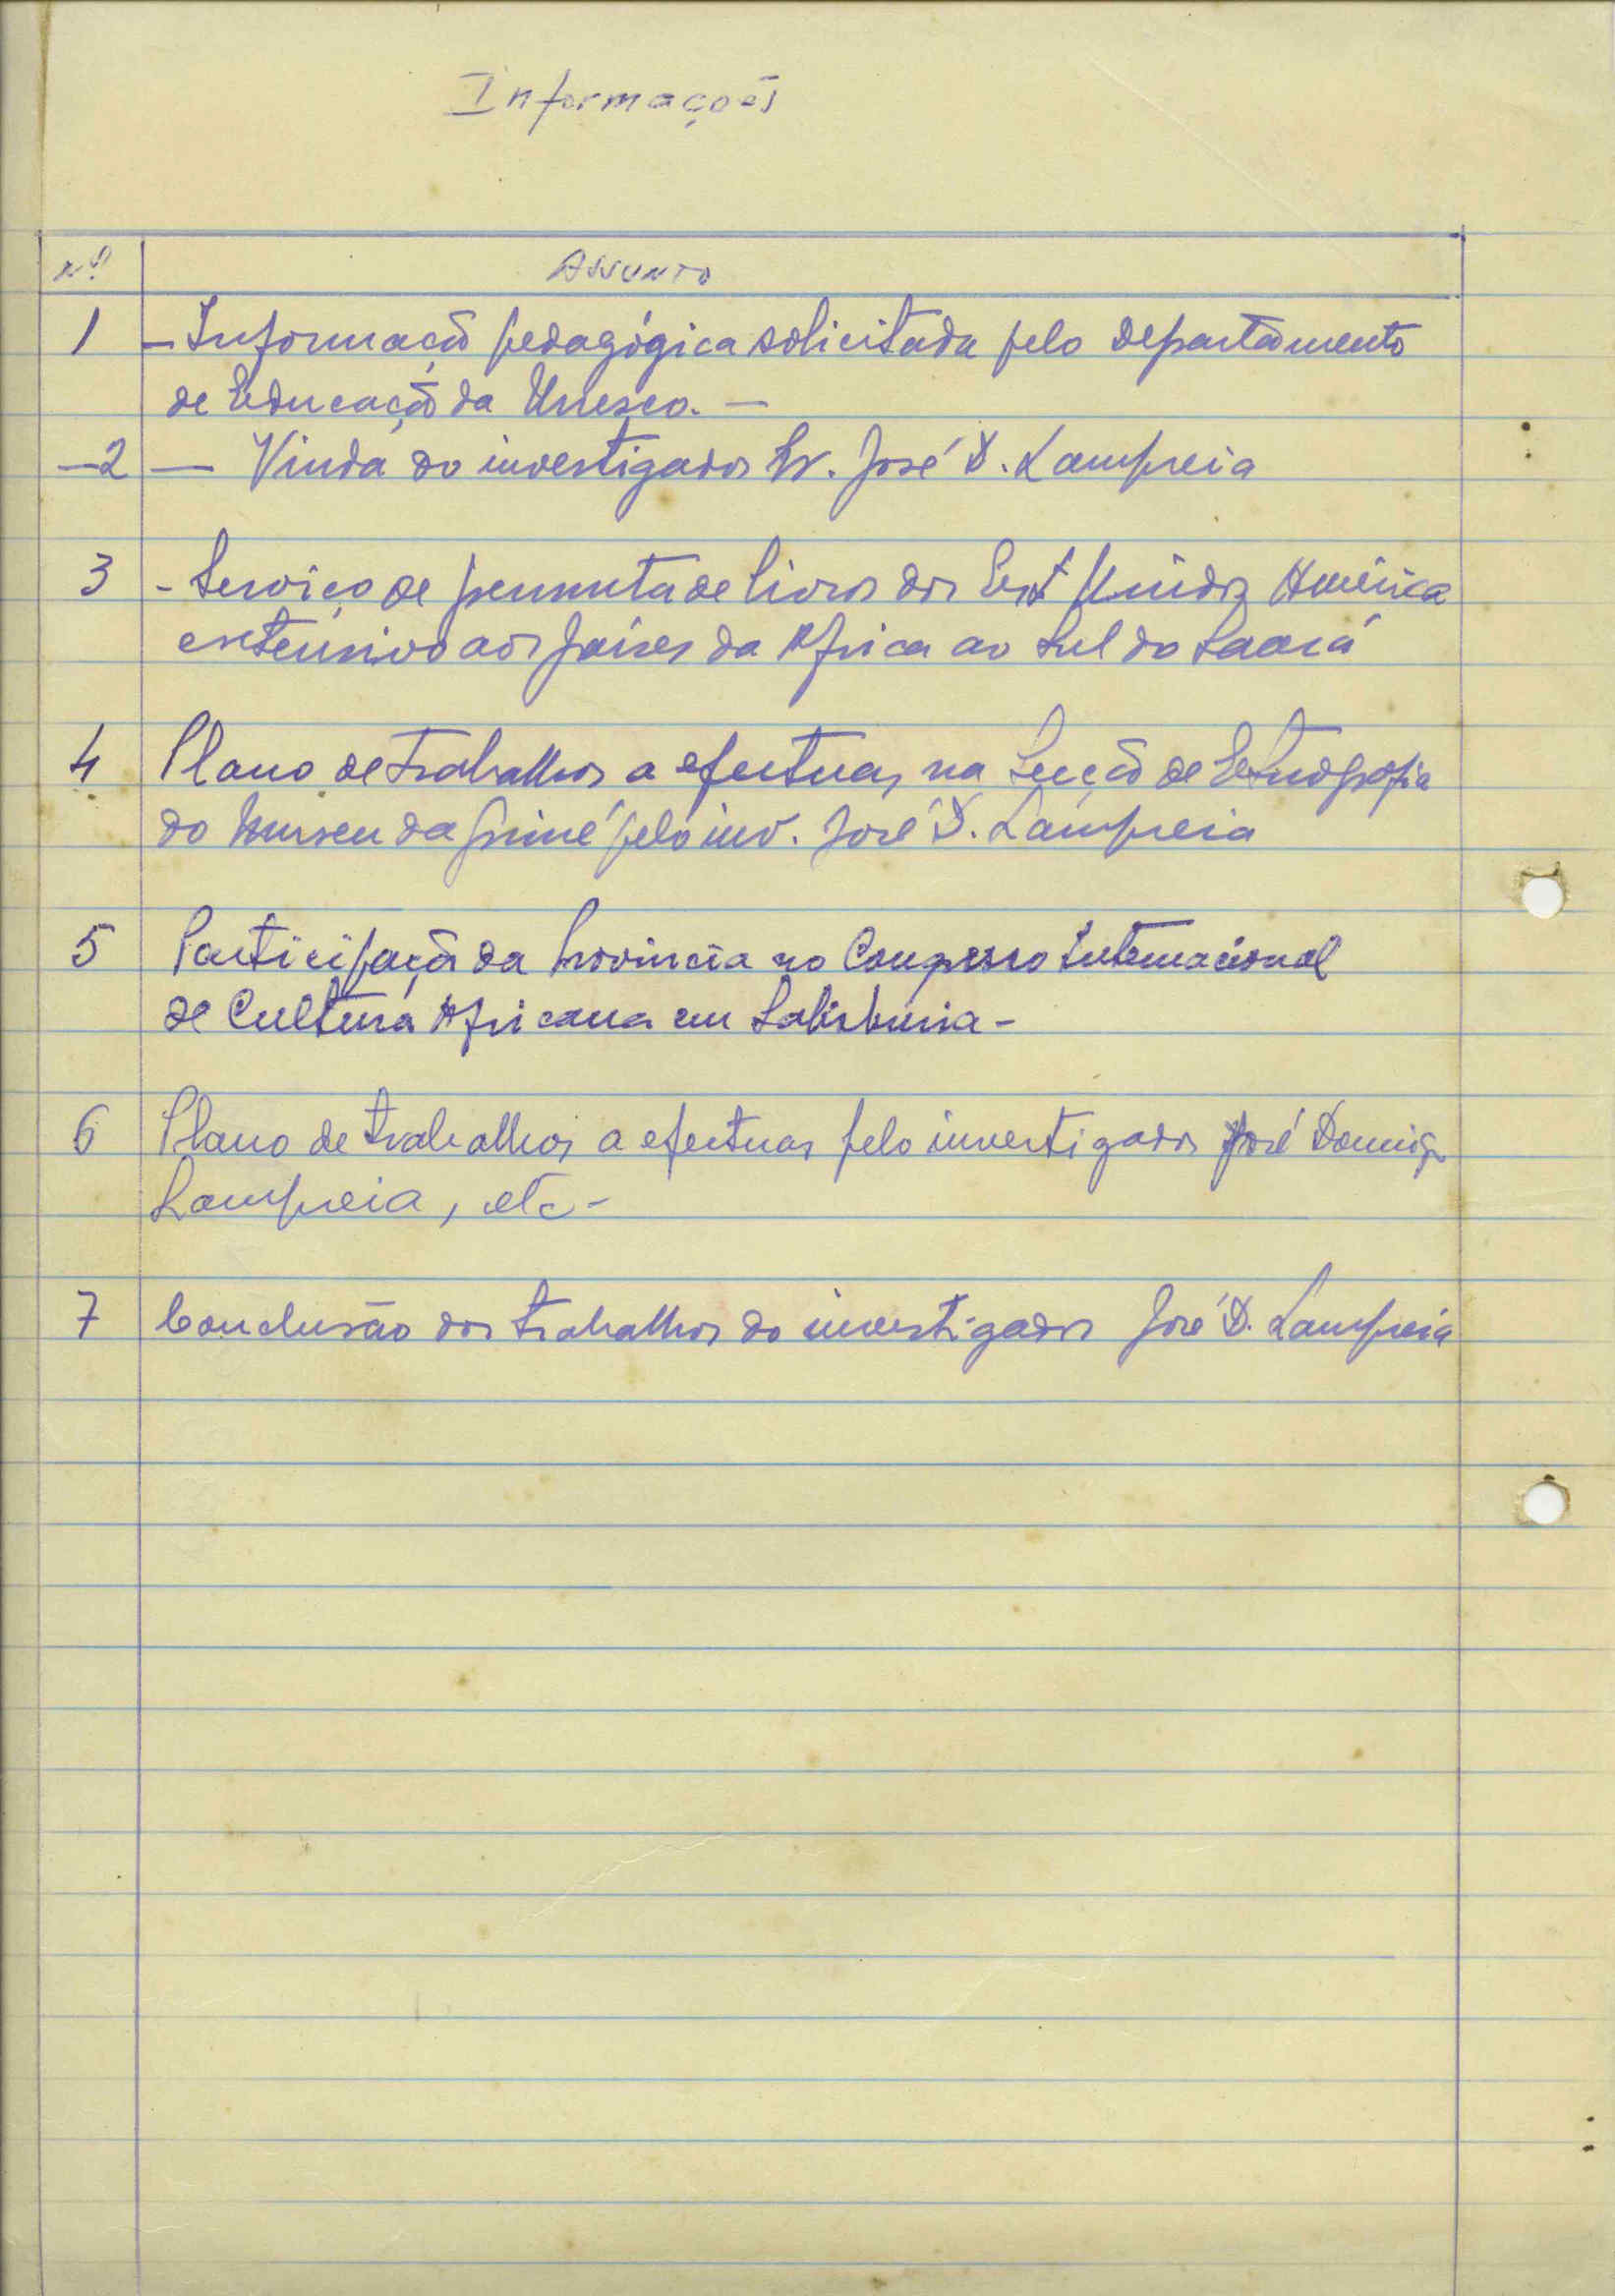 Informações
nº Assunto
1 - Informação pedagógica solicitada pelo Departamento
de Educação da Unesco. -
-2 - Vinda do investigador Sr. José D. Lampreia
3 - Serviço de permuta de livros dos Est Unidos América
extensivo aos países da Africa ao Sul do Saará
4 Plano de trabalhos a efectuar na Secção de Etnografia
do Museu da Guiné pelo inv. José D. Lampreia
5 Participação da Província no Congresso Internacional
de Cultura Africana em Salisburia -
6 Plano de trabalhos a efectuar pelo investigador José Doming
Lampreia, etc -
7 Conclusão dos trabalhos do investigador José D. Lampreia